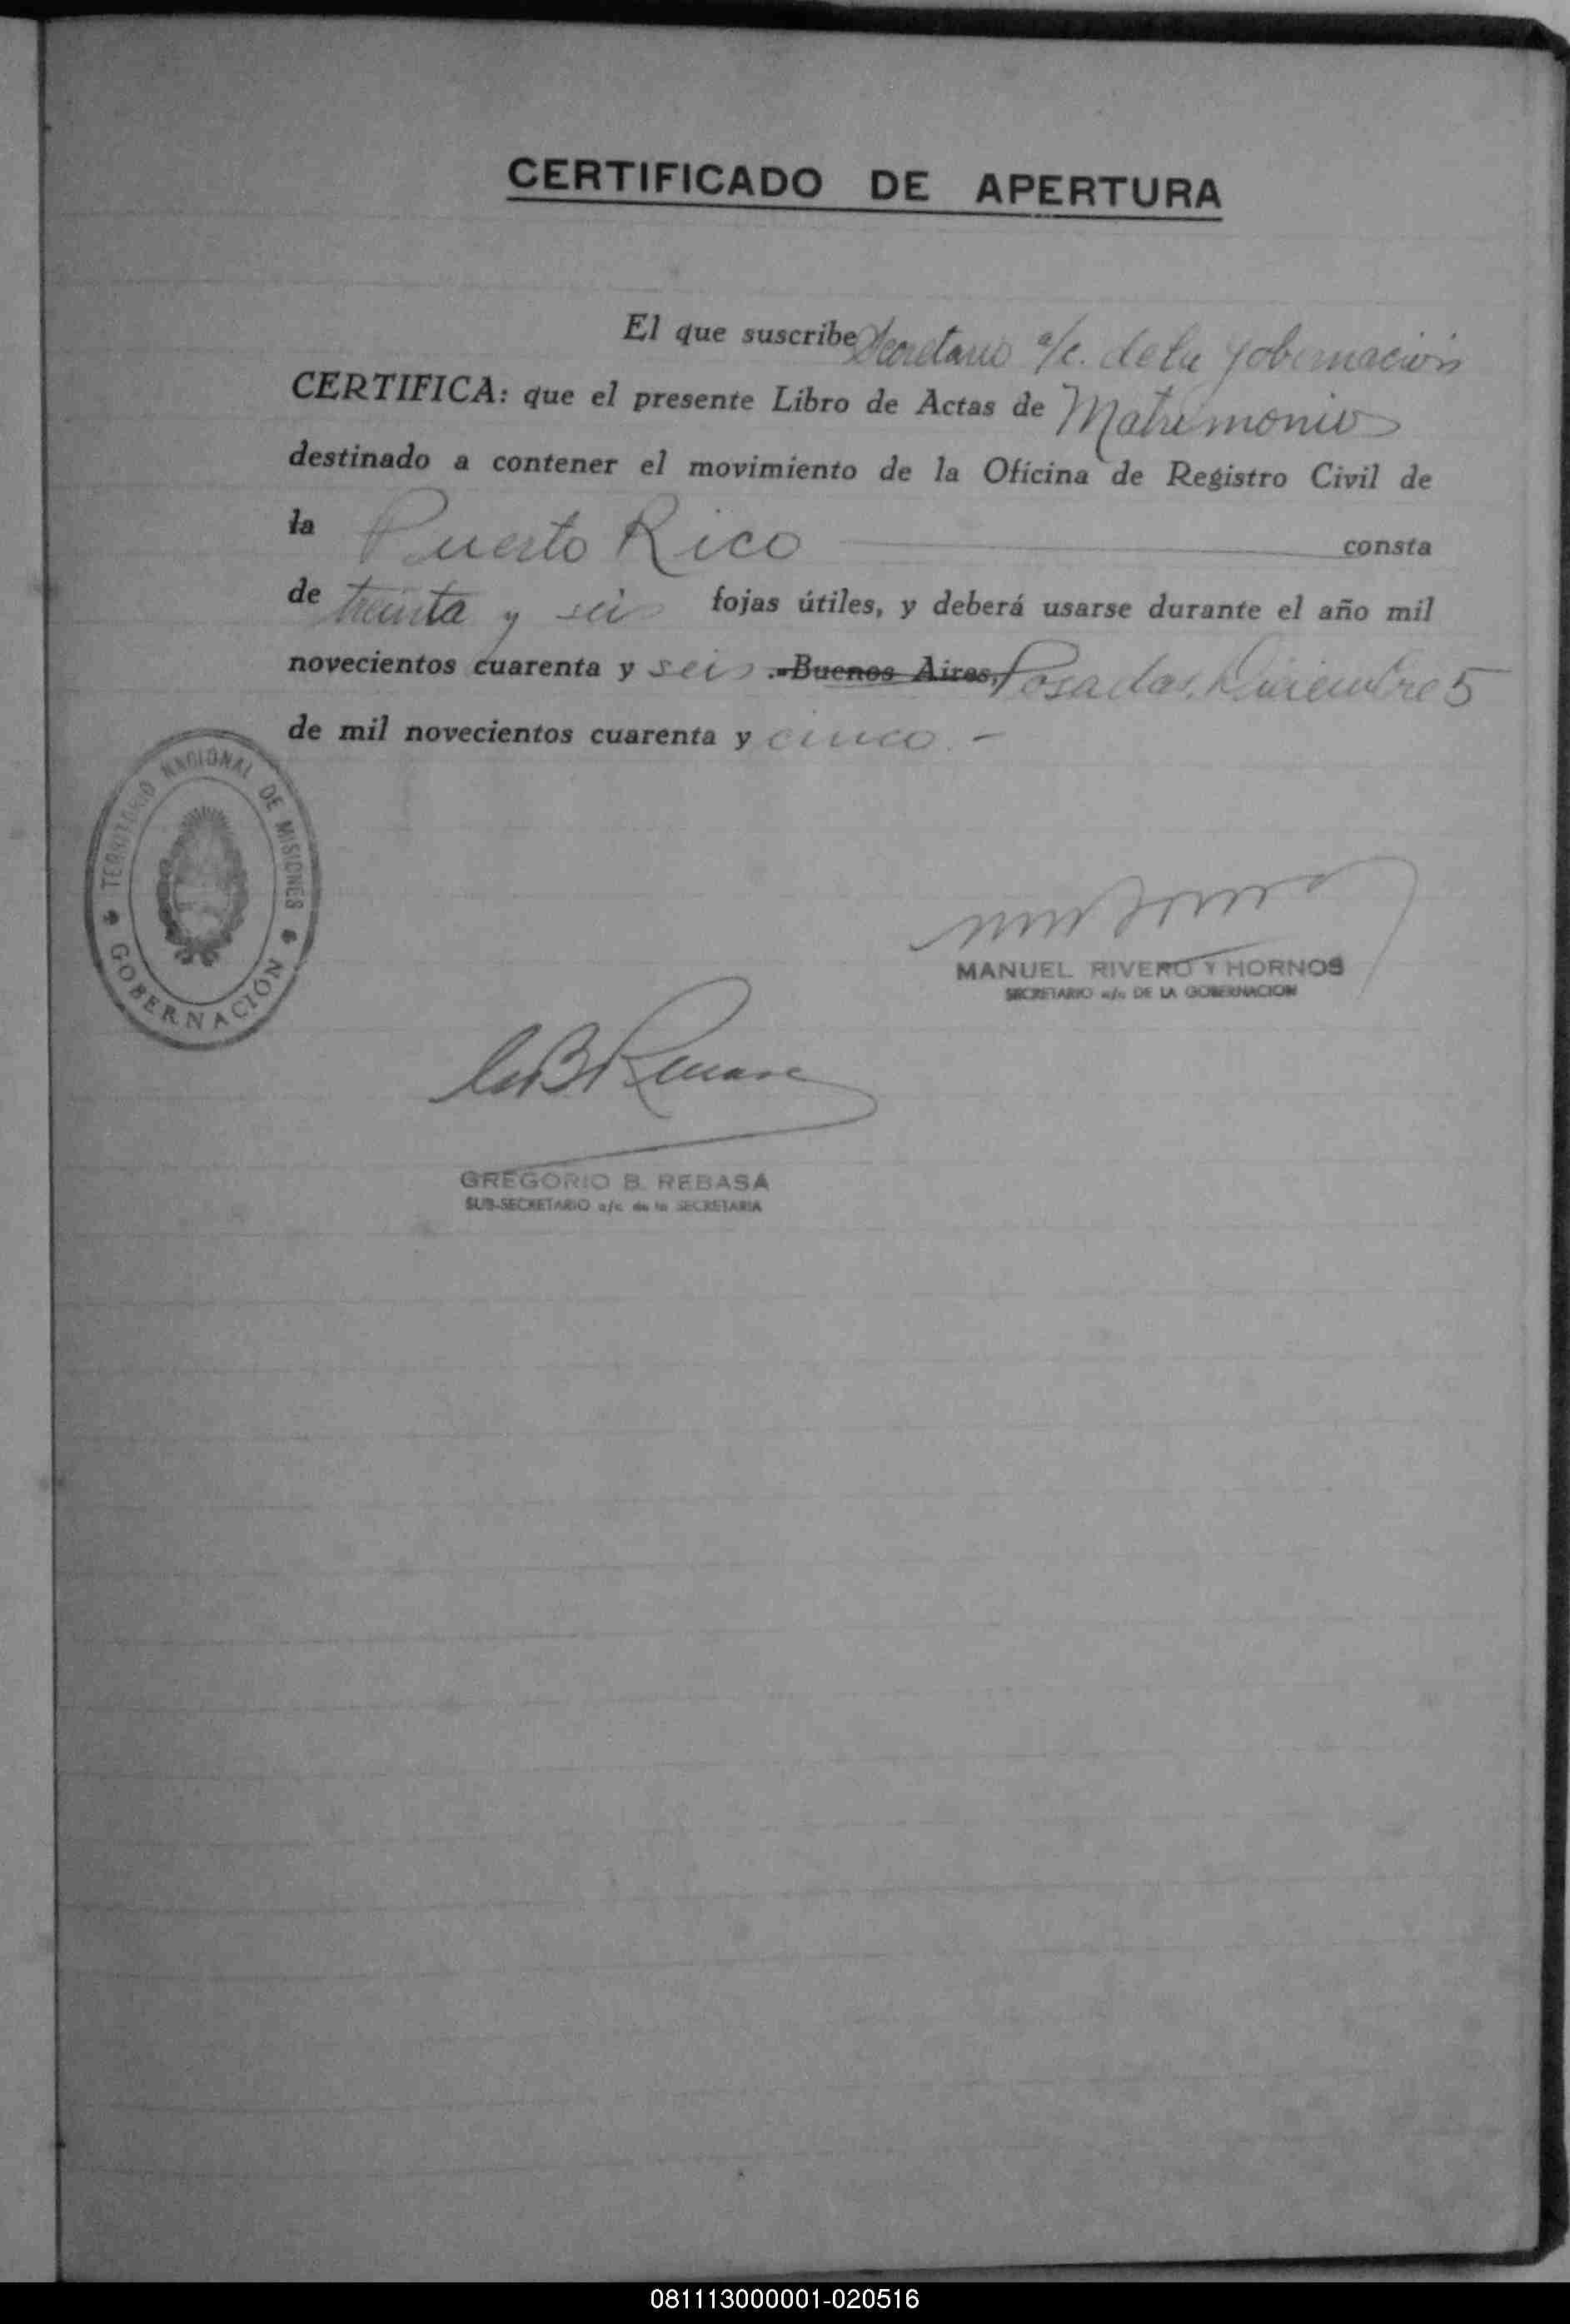 CERTIFICADO DE APERTURA
El que suscribe Secretario a/c. de la Gobernación
CERTIFICA: que el presente Libro de Actas de Matrimonios
destinado a contener el movimiento de la Oficina de Registro Civil de
la Puerto Rico consta
de treinta y seis fojas útiles, y deberá usarse durante el año mil
novecientos cuarenta y seis .-Buenos Aires, Posadas, Diciembre 5
de mil novecientos cuarenta y cinco.-
TERRITORIO NACIONAL DE MISIONES
GOBERNACIÓN
MANUEL RIVERO Y HORNOS
SECRETARIO a/c DE LA GOBERNACION
GREGORIO B. REBASA
SUB-SECRETARIO a/c de la SECRETARIA
081113000001-020516